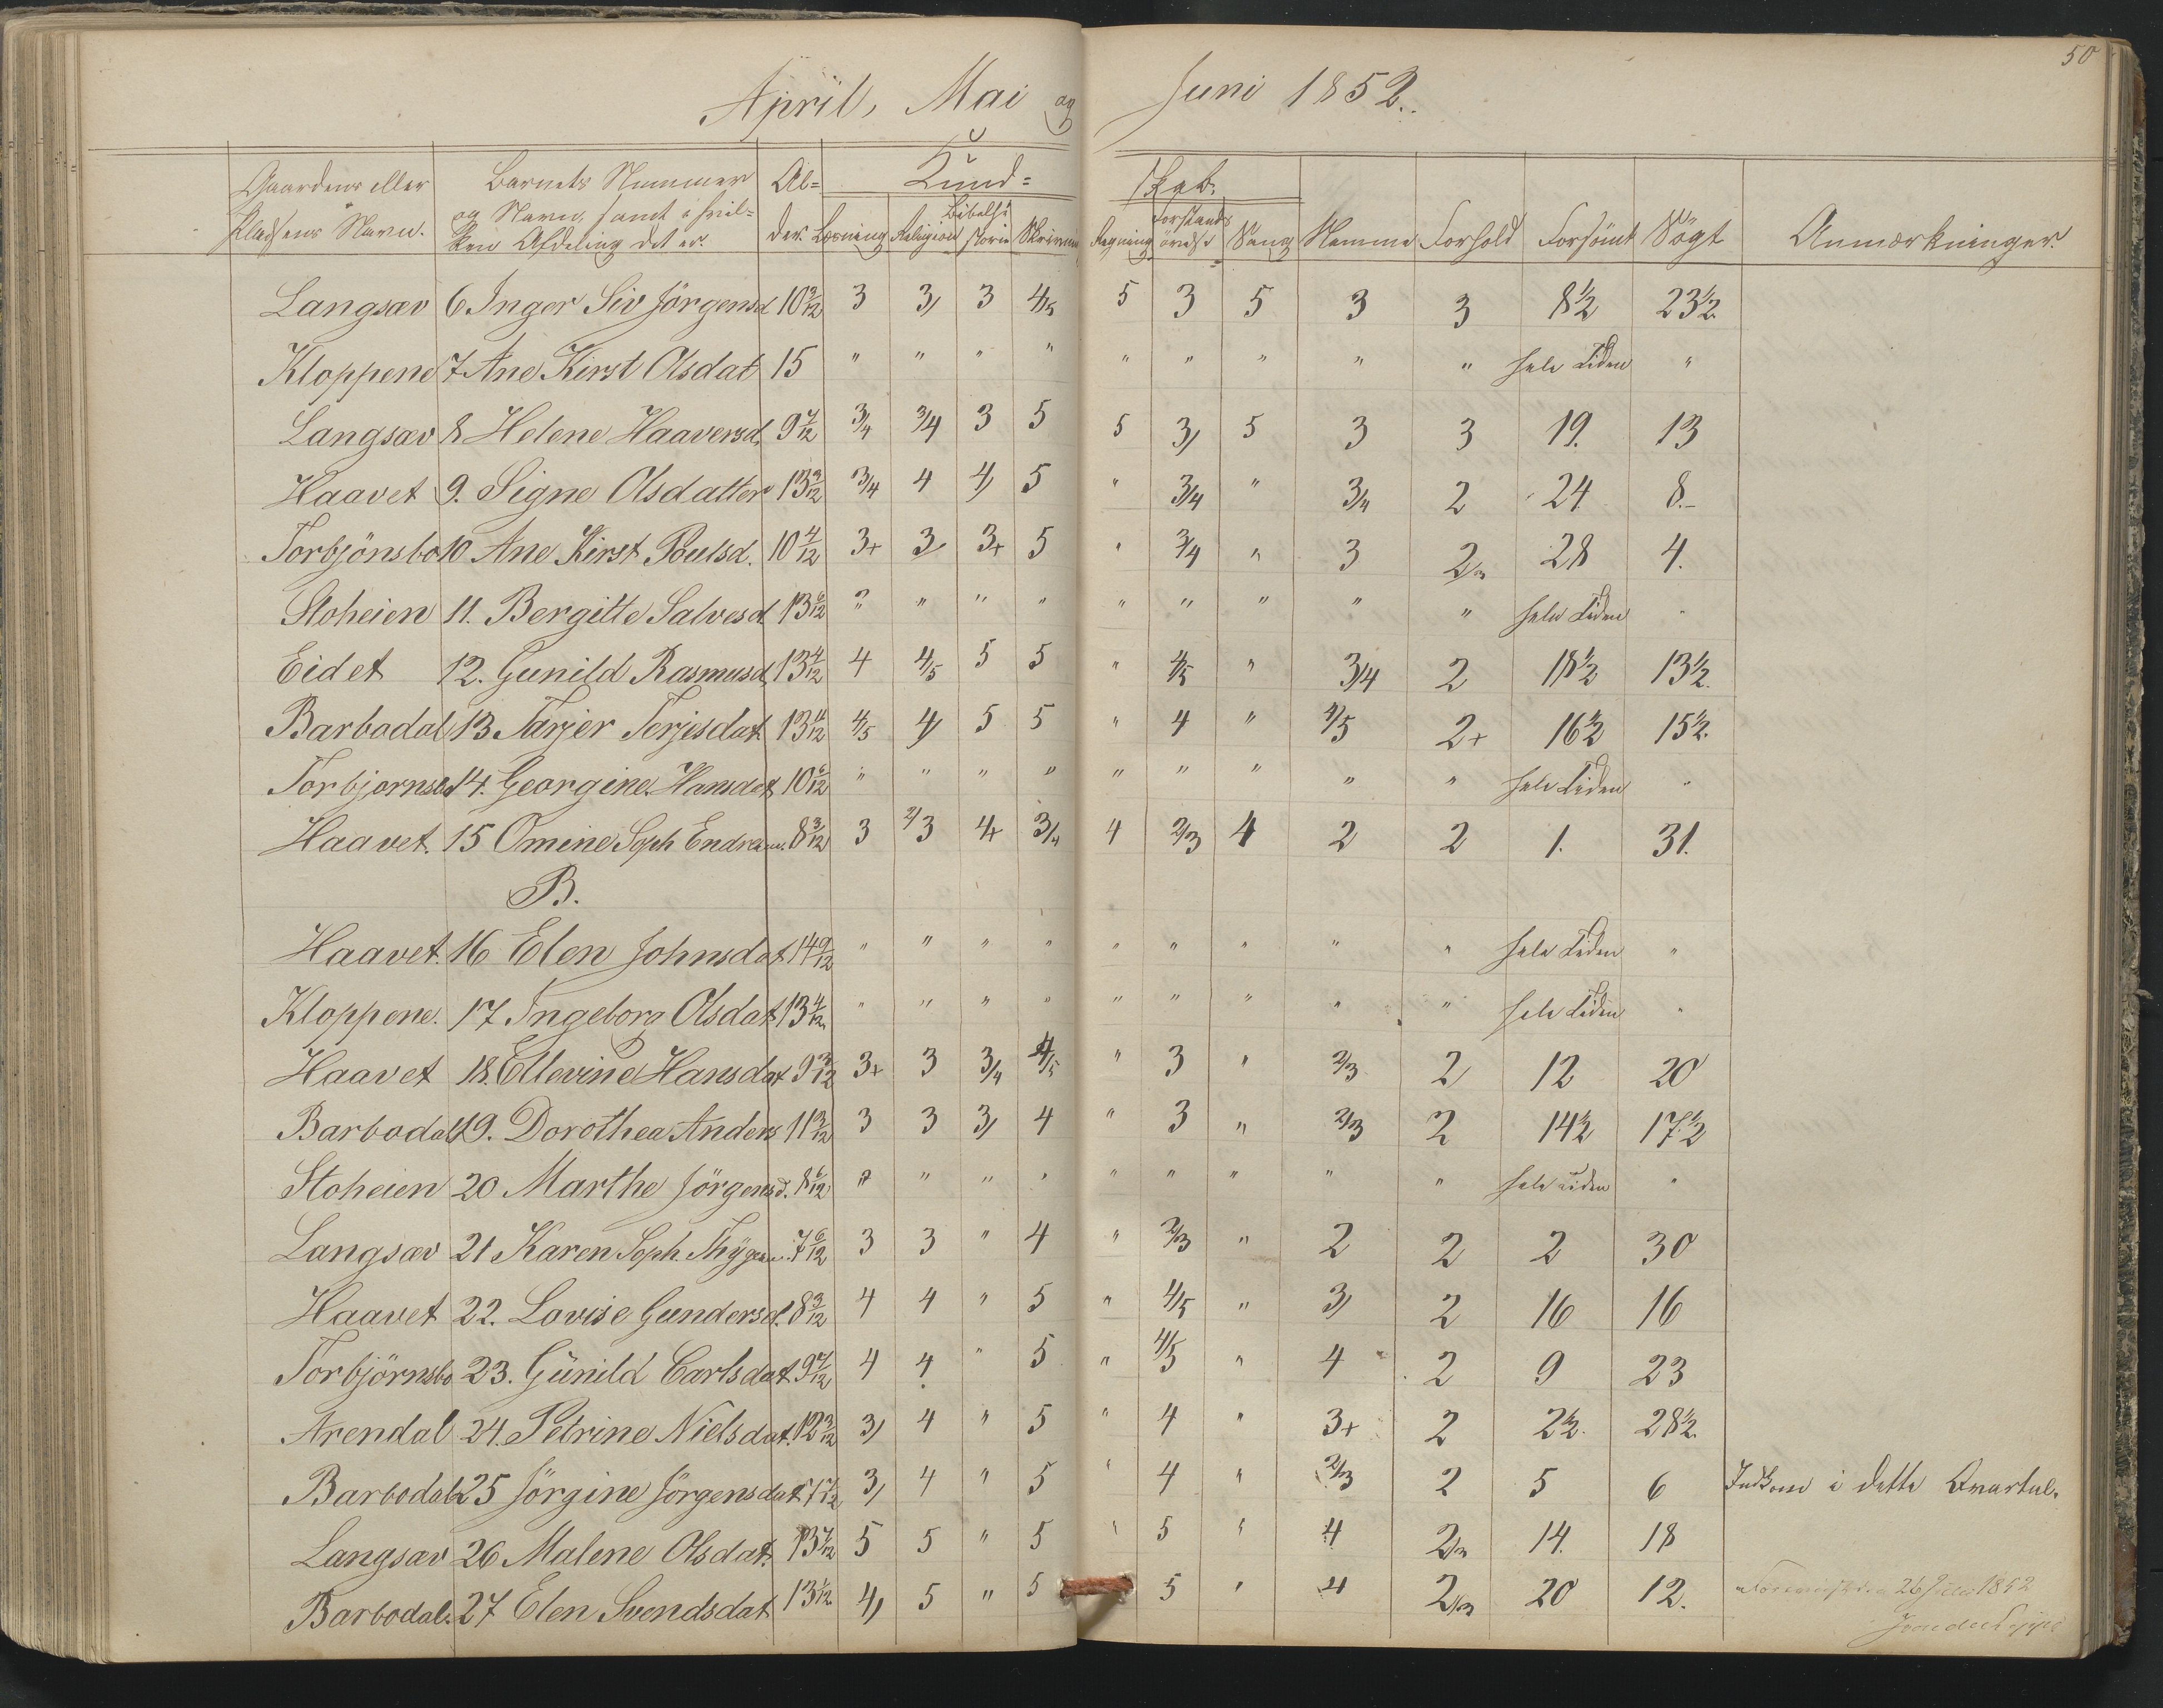 50
April, Mai og Juni 1852.
Gaardens eller Pladsens Navn. Barnets Nummer og Navn, samt i hvilken Afdeling det er. Alder. Kundskab. Læsning Religion Bibelhistorie Skrivning Regning Forstandsøvelse Sang Nemme Forhold Forsömt Søgt Anmærkninger.
Langsæv 6 Inger Siv Jörgensd 10 3/12 3 3/ 3 4/5 5 3 5 3 3 8 1/2 23 1/2
Kloppene 7 Ane Kirst Olsdat 15 " " " " " " " " " hele Tiden "
Langsæv 8 Helene Haaversd. 9 7/12 3/4 3/4 3 5 5 3/ 5 3 3 19. 13
Haavet 9. Signe Olsdatter 13 3/12 3/4 4 4/ 5 " 3/4 " 3/4 2 24 8.-
Torbjönsbo 10 Ane Kirst Poulsd. 10 4/12 3+ 3/ 3+ 5 " 3/4 " 3 2/3 28 4.
Stoheien 11. Bergitte Salvesd. 13 6/12 " " " " " " " " " hele Tiden "
Eidet 12. Gunild Rasmusd. 13 4/12 4 4/5 5 5 " 4/5 " 3/4 2 18 1/2 13 1/2.
Barbodal 13 Tarjer Terjesdat 13 4/12 4/5 4/ 5 5 " 4 " 4/5 2+ 16 1/2 15 1/2.
Torbjornsbo 14. Georgine Hansdat 10 6/12 " " " " " " " " " hele Tiden "
Haavet. 15 Omine Soph Endresen. 8 3/12 3 2/3 4+ 3/4 4 2/3 4 2 2 1. 31.
B.
Haavet. 16 Elen Johnsdat 14 9/12 " " " " " " " " " hele Tiden "
Kloppene. 17 Ingeborg Olsdat 13 4/12. " " " " " " " " " hele Tiden "
Haavet 18. Ellevine Hansdat 9 3/12 3+ 3 3/4 4/5 " 3 " 2/3 2 12 20
Barbodal 19. Dorothea Anders 11 3/12 3 3 3/ 4 " 3 " 2/3 2 14 1/2 17 1/2
Stoheien 20 Marthe Jörgensd. 8 6/12 " " " " " " " " " hele Tiden "
Langsæv 21 Karen Soph. 7 6/12 3 3 " 4 " 2/3 " 2 2 2 30
Haavet 22. Lovise Gundersd. 8 3/12 4 4 " 5 " 4/5 " 3/ 2 16 16
Torbjörnsbo 23. Günild Carlsdat 9 7/12 4 4 " 5 " 4/5 " 4 2 9 23
Arendal 24. Petrine Nielsdat. 12 3/12 3/ 4 " 5 " 4 " 3+ 2 2 1/2. 28 1/2.
Barbodal 25 Jörgine Jörgensdat 3/ 4 " 5 " 4 " 2/3 2 5 6 Indkom i dette Qvartal.
Langsæv 26 Malene Olsdat. 13 7/12 5 5 " 5 " 5 " 4 2/3 14. 18
Barbodal. 27 Elen Svendsdat 13 1/12 4/ 5 " 5 5 " 4 2/3 20 12. 26 Juli 1852